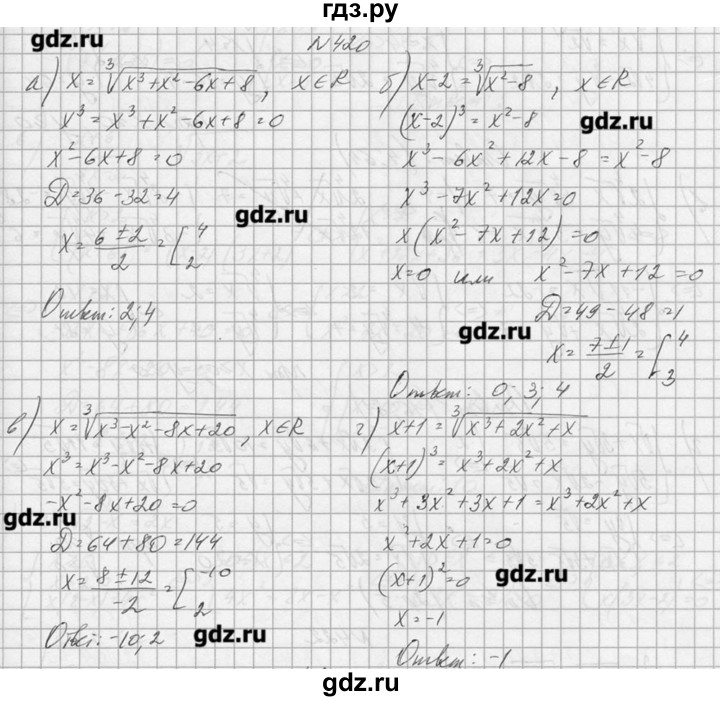 гдз.ру
gdz.ru
N420
а) x = ∛(x³+x²-6x+8), x∈R
x³ = x³+x²-6x+8=0
x²-6x+8=0
Д=36-32=4
x = (6±2)/2 = [4 2
gdz.ru
Ответ: 2; 4
б) x-2 = ∛(x²-8), x∈R
(x-2)³ = x²-8
gdz.ru
x³-6x²+12x-8 = x²-8
x³-7x²+12x=0
x(x²-7x+12)=0
x=0 или x²-7x+12=0
Д=49-48=1
gdz.ru
x = (7±1)/2 = [4 3
Ответ: 0; 3; 4
в) x = ∛(x³-x²-8x+20), x∈R
x³ = x³-x²-8x+20
-x²-8x+20=0
gdz.ru
Д=64+80=144
x = (8±12)/-2 = [-10 2
Ответ: -10; 2
gdz.ru
г) x+1 = ∛(x³+2x²+x)
(x+1)³ = x³+2x²+x
x³+3x²+3x+1 = x³+2x²+x
x²+2x+1=0
(x+1)²=0
gdz.ru
x=-1
Ответ: -1
gdz.ru